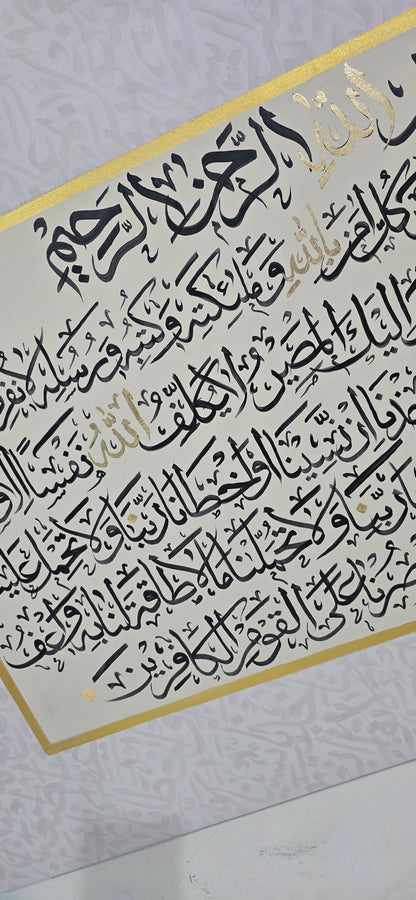 الله الرَّحمن الرَّحيم
كل امن بالله وملئكته وكتبه ورسله لا
اليك المصير لا يكلّف الله نفسًا الا
ان نسينا او اخطانا ربّنا ولا تحمل
ربّنا ولا تحمّلنا ما لا طاقة لنا به واعف
على القوم الكافرين